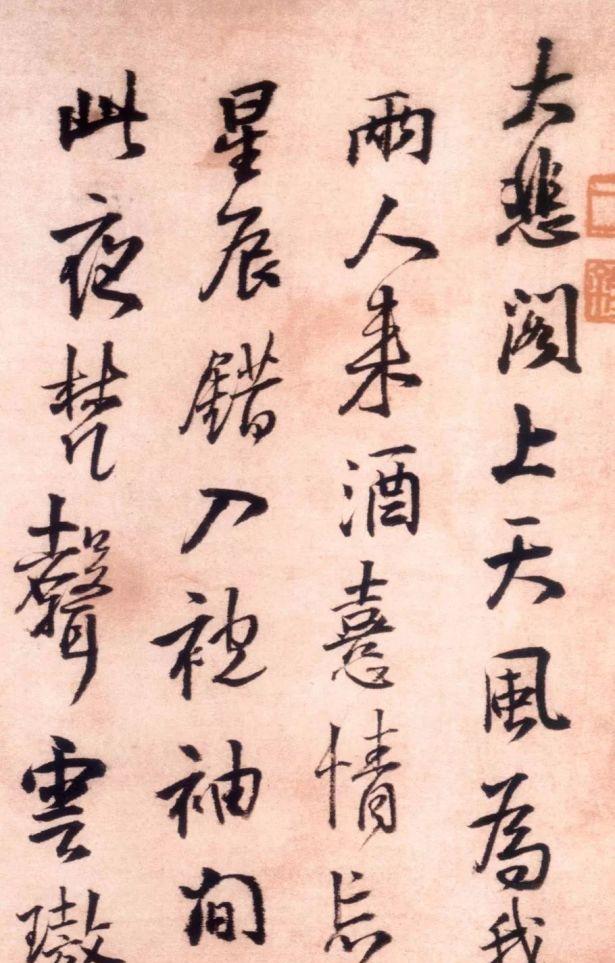 大悲閣上天風為我
兩人來酒憙情忘
星辰錯入裞袖間
此夜梵聲雲璈